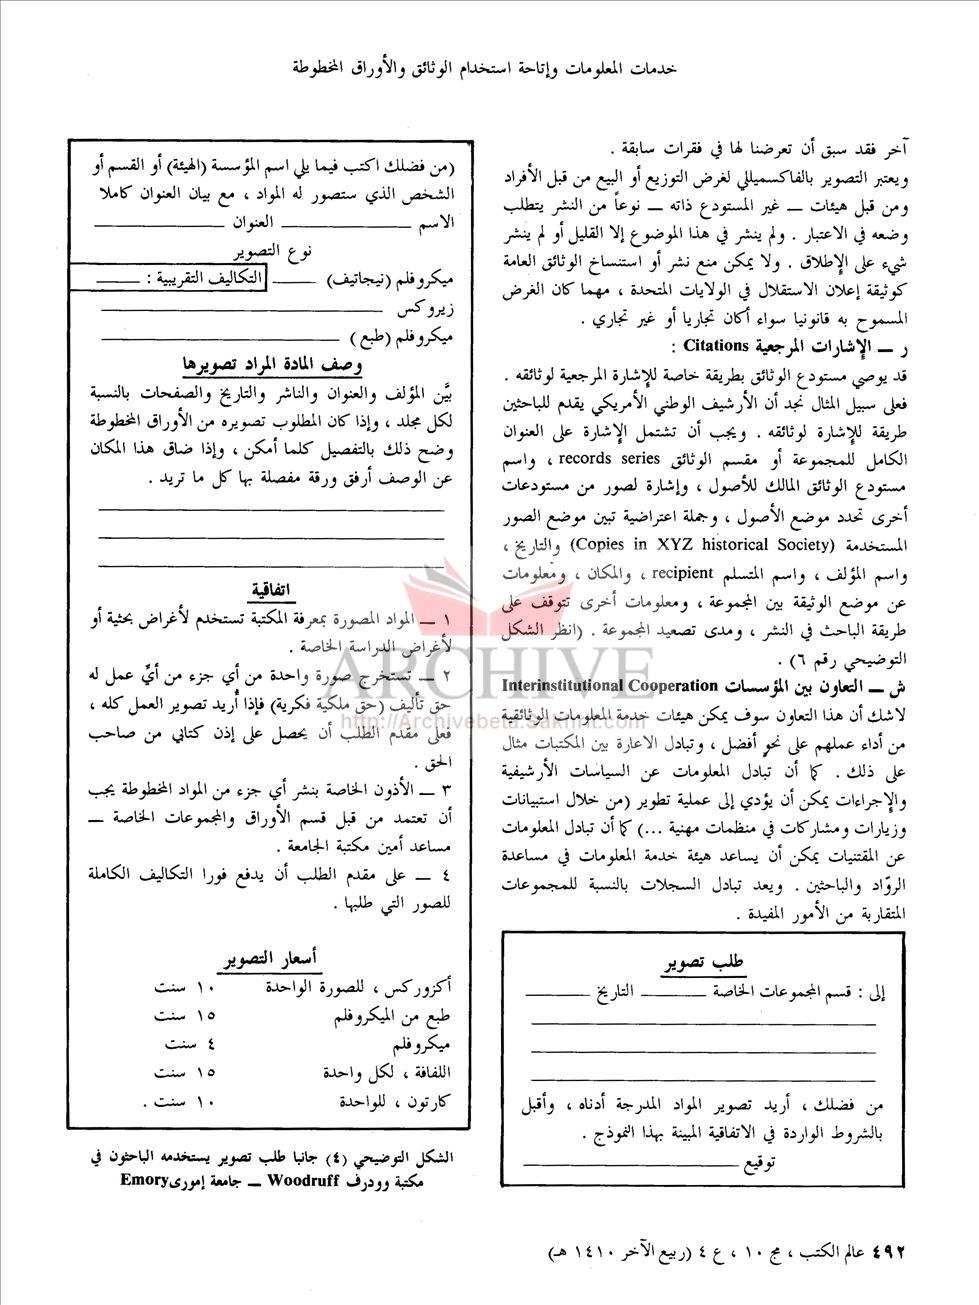 خدمات المعلومات وإتاحة استخدام الوثائق والأوراق المخطوطة
آخر فقد سبق أن تعرضنا لها في فقرات سابقة .
ويعتبر التصوير بالفاكسميللي لغرض التوزيع أو البيع من قبل الأفراد
ومن قبل هيئات ــ غير المستودع ذاته ــ نوعاً من النشر يتطلب
وضعه في الاعتبار . ولم ينشر في هذا الموضوع إلا القليل أو لم ينشر
شيء على الإطلاق . ولا يمكن منع نشر أو استنساخ الوثائق العامة
كوثيقة إعلان الاستقلال في الولايات المتحدة ، مهما كان الغرض
المسموح به قانونيا سواء أكان تجاريا أو غير تجاري .
ر ــ الإشارات المرجعية Citations :
قد يوصي مستودع الوثائق بطريقة خاصة للإشارة المرجعية لوثائقه .
فعلى سبيل المثال نجد أن الأرشيف الوطني الأمريكي يقدم للباحثين
طريقة للإشارة لوثائقه . ويجب أن تشتمل الإشارة على العنوان
الكامل للمجموعة أو مقسم الوثائق records series ، واسم
مستودع الوثائق المالك للأصول ، وإشارة لصور من مستودعات
أخرى تحدد موضع الأصول ، وجملة اعتراضية تبين موضع الصور
المستخدمة (Copies in XYZ historical Society) والتاريخ ،
واسم المؤلف ، واسم المتسلم recipient ، والمكان ، ومعلومات
عن موضع الوثيقة بين المجموعة ، ومعلومات أخرى تتوقف على
طريقة الباحث في النشر ، ومدى تصعيد المجموعة . (انظر الشكل
التوضيحي رقم ٦) .
ش ــ التعاون بين المؤسسات Interinstitutional Cooperation
لاشك أن هذا التعاون سوف يمكن هيئات خدمة المعلومات الوثائقية
من أداء عملهم على نحوٍ أفضل ، وتبادل الاعارة بين المكتبات مثال
على ذلك . كما أن تبادل المعلومات عن السياسات الأرشيفية
والإجراءات يمكن أن يؤدي إلى عملية تطوير (من خلال استبيانات
وزيارات ومشاركات في منظمات مهنية ...) كما أن تبادل المعلومات
عن المقتنيات يمكن أن يساعد هيئة خدمة المعلومات في مساعدة
الروّاد والباحثين . ويعد تبادل السجلات بالنسبة للمجموعات
المتقاربة من الأمور المفيدة .
طلب تصوير
إلى : قسم المجموعات الخاصة ـــــــــ التاريخ ـــــــــ
من فضلك ، أريد تصوير المواد المدرجة أدناه ، وأقبل
بالشروط الواردة في الاتفاقية المبينة بهذا النموذج .
توقيع ــــــــــــــــــ
(من فضلك اكتب فيما يلي اسم المؤسسة (الهيئة) أو القسم أو
الشخص الذي ستصور له المواد ، مع بيان العنوان كاملا
الاسم ـــــــــــــ العنوان ـــــــــــــ
نوع التصوير
ميكروفلم (نيجاتيف) ـــــــ التكاليف التقريبية : ـــــــ
زيروكس ـــــــــــــــــــــ
ميكروفلم (طبع ) ـــــــــــــــــــــ
وصف المادة المراد تصويرها
بيَّن المؤلف والعنوان والناشر والتاريخ والصفحات بالنسبة
لكل مجلد ، وإذا كان المطلوب تصويره من الأوراق المخطوطة
وضح ذلك بالتفصيل كلما أمكن ، وإذا ضاق هذا المكان
عن الوصف أرفق ورقة مفصلة بها كل ما تريد .
اتفاقية
١ ــ المواد المصورة بمعرفة المكتبة تستخدم لأغراض بحثية أو
لأغراض الدراسة الخاصة .
٢ ــ تستخرج صورة واحدة من أي جزء من أيّ عمل له
حق تأليف (حق ملكية فكرية) فإذا أُريد تصوير العمل كله ،
فعلى مقدم الطلب أن يحصل على إذن كتابي من صاحب
الحق .
٣ ــ الأذون الخاصة بنشر أي جزء من المواد المخطوطة يجب
أن تعتمد من قبل قسم الأوراق والمجموعات الخاصة ــ
مساعد أمين مكتبة الجامعة .
٤ ــ على مقدم الطلب أن يدفع فورا التكاليف الكاملة
للصور التي طلبها .
أسعار التصوير
أكزوركس ، للصورة الواحدة ١٠ سنت
طبع من الميكروفلم ١٥ سنت
ميكروفلم ٤ سنت
اللفافة ، لكل واحدة ١٥ سنت
كارتون ، للواحدة ١٠ سنت .
الشكل التوضيحي (٤) جانبا طلب تصوير يستخدمه الباحثون في
مكتبة وودرف Woodruff ــ جامعة إمورى Emory
ARCHIVE
http://Archivebeta.Sakhrit.com
٤٩٢ عالم الكتب ، مج ١٠ ، ع ٤ (ربيع الآخر ١٤١٠ هـ)